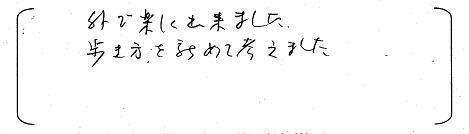 外で楽しく出来ました。
歩き方を改めて考えました